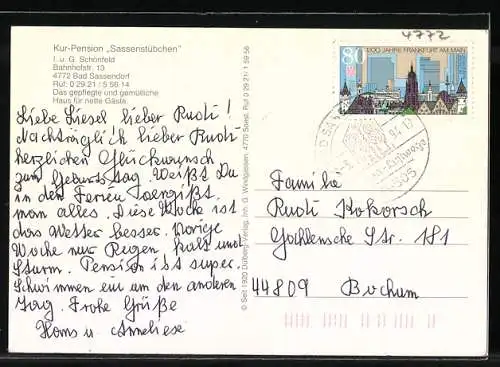 4772
Kur-Pension „Sassenstübchen"
I. u. G. Schönfeld
Bahnhofstr. 13
4772 Bad Sassendorf
Ruf: 0 29 21 / 5 56 14
Das gepflegte und gemütliche
Haus für nette Gäste.
80
1200 JAHRE FRANKFURT AM MAIN
Liebe Liesel lieber Rudi!
Nachträglich lieber Rudi
herzlichen Glückwunsch
zum Geburtstag. Weißt Du
in den Ferien vergißt
man alles. Diese Woche ist
das Wetter besser. Vorige
Woche nur Regen, kalt und
Sturm. Pension ist super.
Schwimmen ein um den anderen
Tag. Frohe Grüße
Hans u. Anneliese
© Seit 1920 Dülberg-Verlag, Inh. G. Windgassen, 4770 Soest, Ruf 0 29 21 / 1 59 56
Familie
Rudi Kokorsch
Gahlensche Str. 181
44809 Bochum